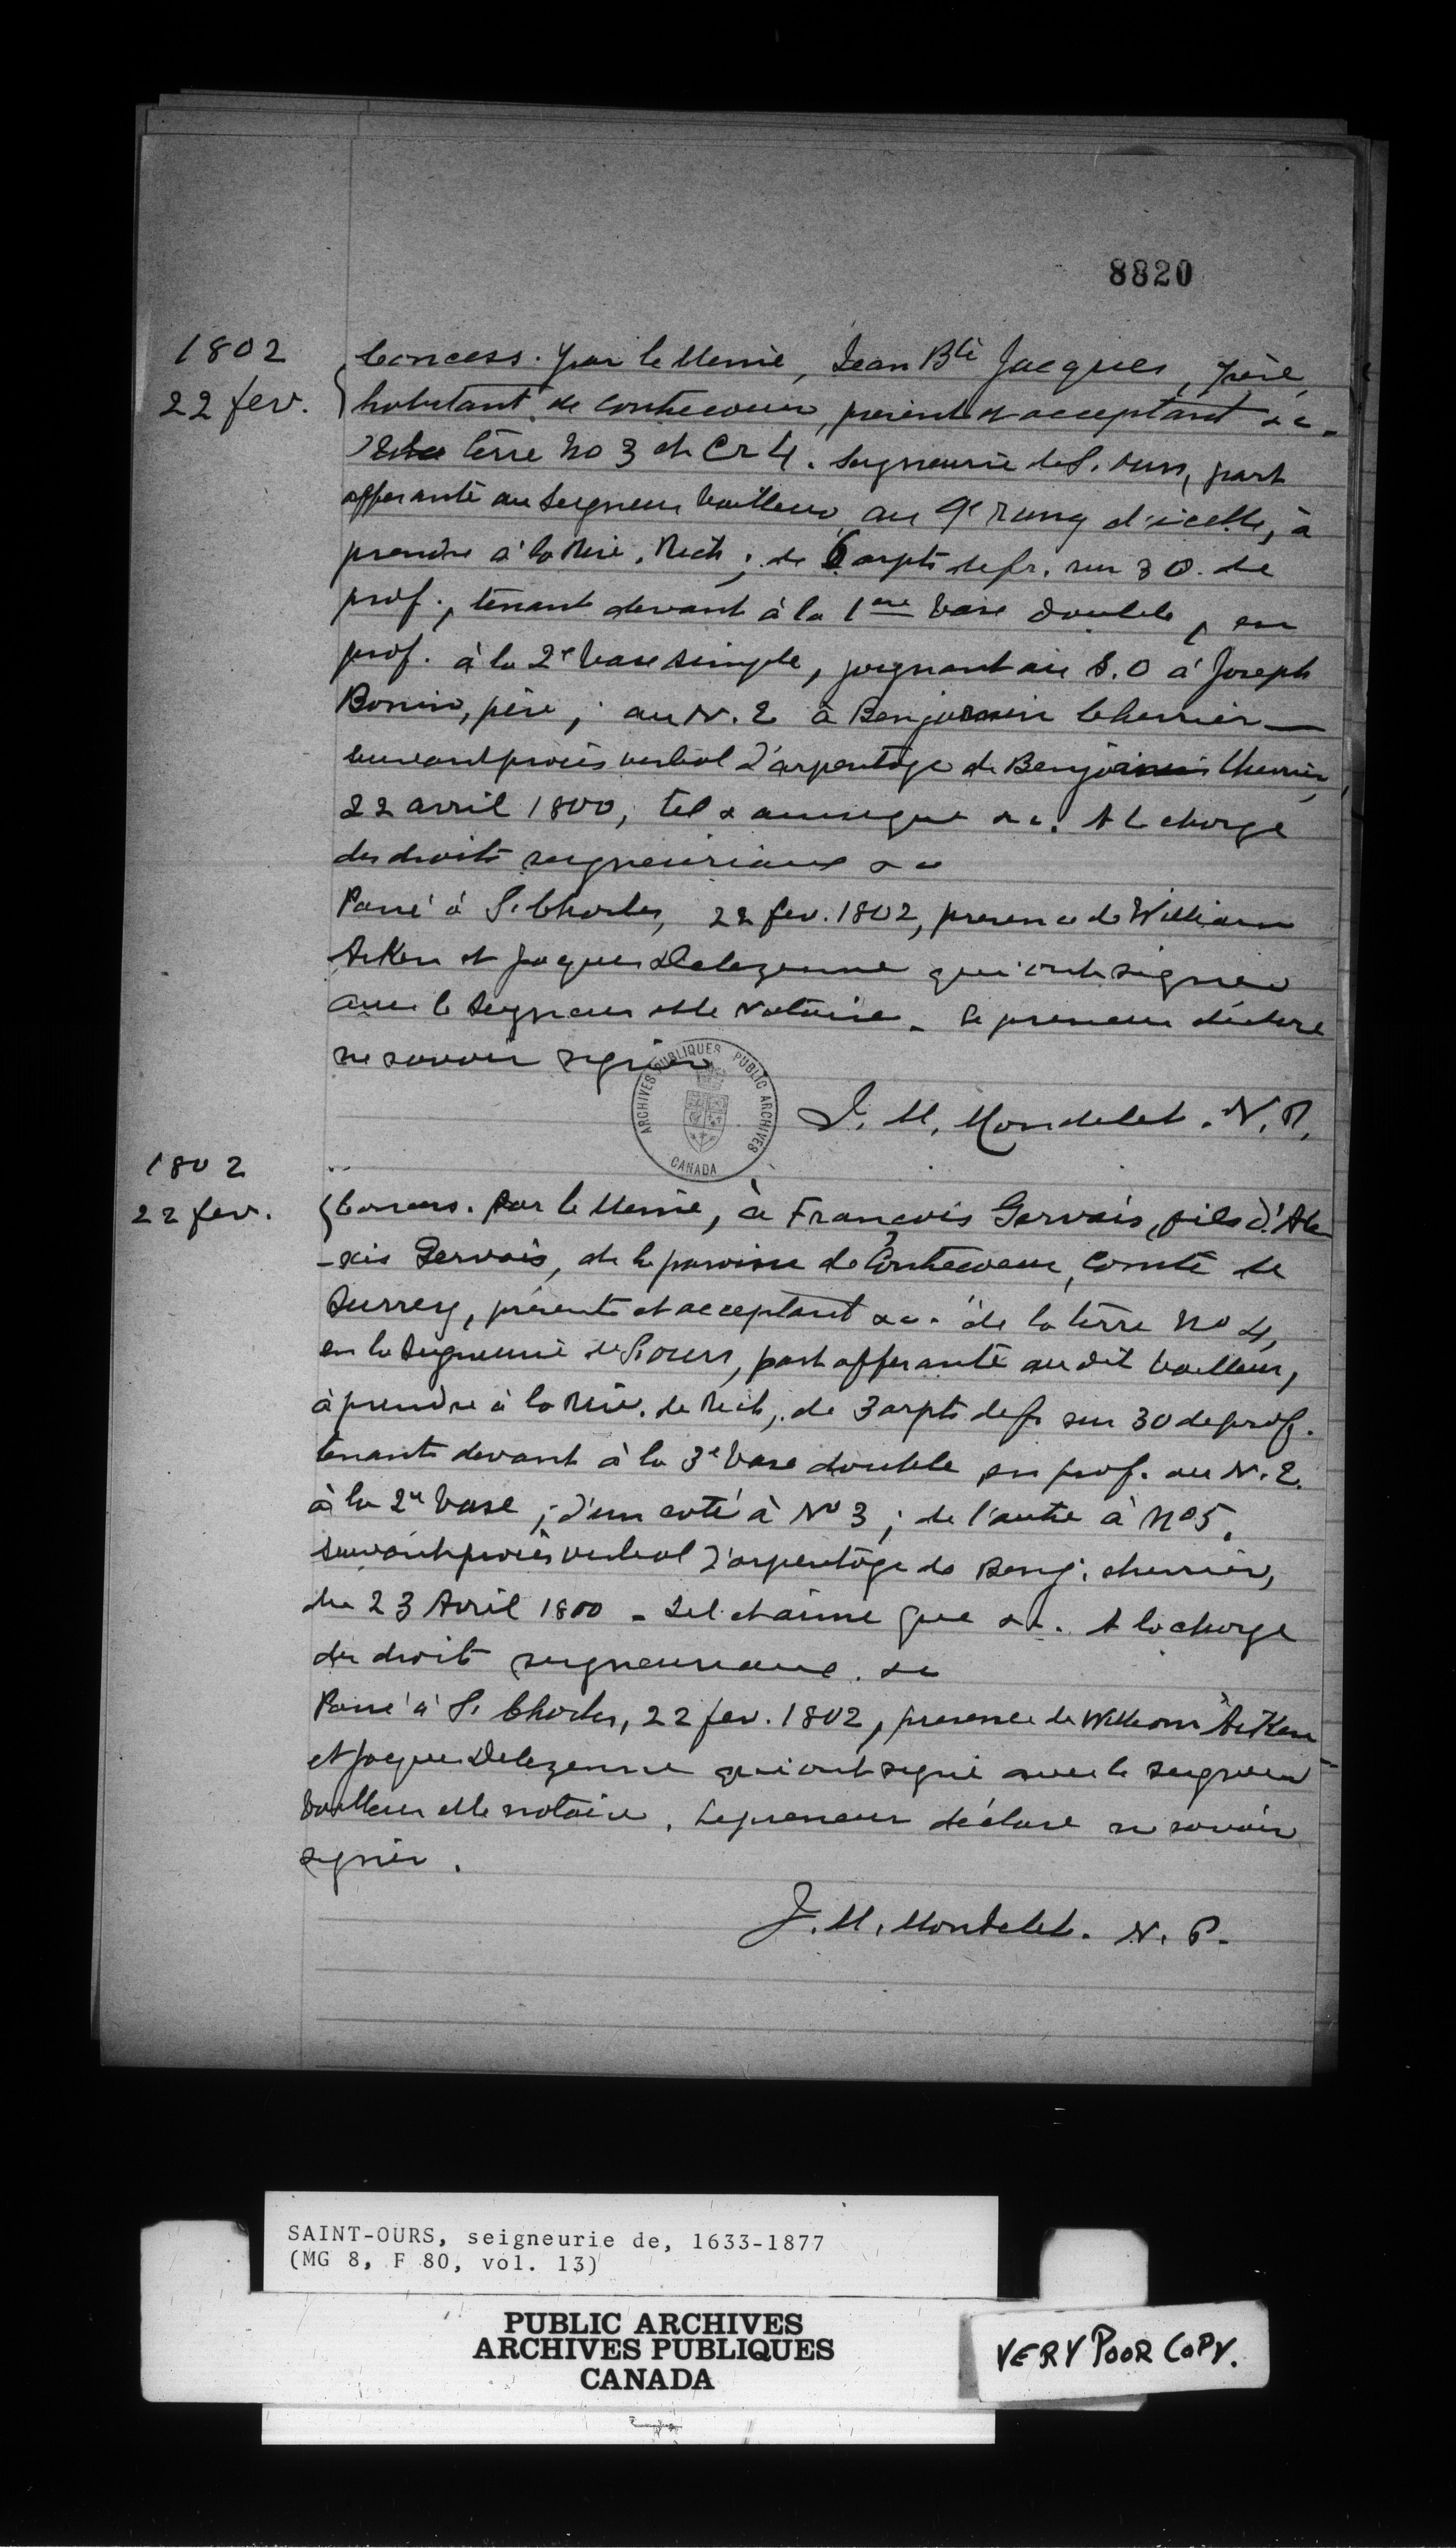 8820
1802
22 fev.
Concess. par le Meme, Jean Bte Jacques, père,
habitant de Contrecoeur, present et acceptant &c.
terre No 3 et 4. Seigneurie de S. Ours, part
afferante au Seigneur bailleur au 9e rang d'icelle, à
prendre à la Riv. Rich; de 6 arpts de fr. sur 30. de
prof., tenant devant à la 1ere base double, en
prof. à la 2e base simple, joignant au S.O à Joseph
Bonin, père; au N.E à Benjamin Cherrier —
suivant procès verbal d'arpentage de Benjamin Cherrier,
22 avril 1800, tel & ainsi que &c. A la charge
des droits seigneuriaux &c
Passé à St Charles, 22 fev. 1802, presence de William
Aiken et Jacques Delezenne qui ont signé
avec le Seigneur et le Notaire. Le preneur déclare
ne savoir signer
J. M. Mondelet. N.P.
ARCHIVES PUBLIQUES PUBLIC ARCHIVES CANADA
1802
22 fev.
Concess. Par le Meme, à François Gervais, fils d'Ale
-xis Gervais, de la paroisse de Contrecoeur, Comté de
Surrey, présent et acceptant &c. de la terre No 4,
en la Seigneurie de St Ours, part afferante au dit bailleur,
à prendre à la Riv. de Rich, de 3 arpts de fr sur 30 de prof.
tenant devant à la 3e base double en prof. au N.E.
à la 2e base; d'un coté à No 3; de l'autre à No 5.
suivant procès verbal d'arpentage de Benj. Cherrier,
du 23 Avril 1800 - Tel et ainsi que &c. A la charge
des droits seigneuriaux. &c
Passé à St Charles, 22 fev. 1802, presence de William Aiken
et Jacques Delezenne qui ont signé avec le Seigneur
bailleur et le notaire. Le preneur déclare ne savoir
signer.
J. M. Mondelet. N. P.
SAINT-OURS, seigneurie de, 1633-1877
(MG 8, F 80, vol. 13)
PUBLIC ARCHIVES
ARCHIVES PUBLIQUES
CANADA
VERY POOR COPY.